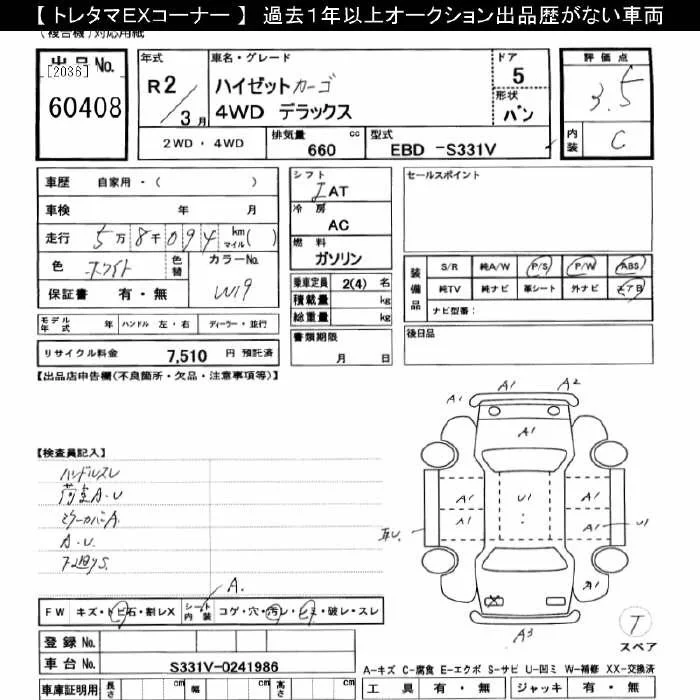 【トレタマEXコーナー】 過去1年以上オークション出品歴がない車両
(複合機)対応用紙
出品No.
[2036]
60408
年式
R2
3月
車名・グレード
ハイゼットカーゴ
4WD デラックス
ドア
5
形状
バン
評価点
3.5
内装
C
2WD・4WD
排気量
660 cc
型式
EBD -S331V
車歴 自家用・( )
車検 年 月
走行 5万8千094 km マイル( )
色 ホワイト
色替
カラーNo.
W19
保証書 有・無
モデル年式 年
ハンドル 左・右
ディーラー・並行
リサイクル料金 7,510 円 預託済
シフト
IAT
冷房
AC
燃料
ガソリン
乗車定員 2(4) 名
積載量 kg
総重量 kg
書類期限
月 日
セールスポイント
装備品
S/R 純A/W P/S P/W ABS
純TV 純ナビ 革シート 外ナビ エアB
ナビ型番:
後日品
【出品店申告欄(不良箇所・欠品・注意事項等)】
【検査員記入】
ハンドルスレ
荷室A・U
ミラーカバーA
A・U
A1
A1
A2
A1
A1
A1
U1
A1
A1
U1
A1
A3
A.
FW キズ・トビ石・割レX
シート内装 コゲ・穴・汚レ・シミ・破レ・スレ
登録No.
車台No. S331V-0241986
車庫証明用 長さ cm 幅 cm 高さ cm
T
スペア
A-キズ C-腐食 E-エクボ S-サビ U-凹ミ W-補修 XX-交換済
工具 有・無 ジャッキ 有・無